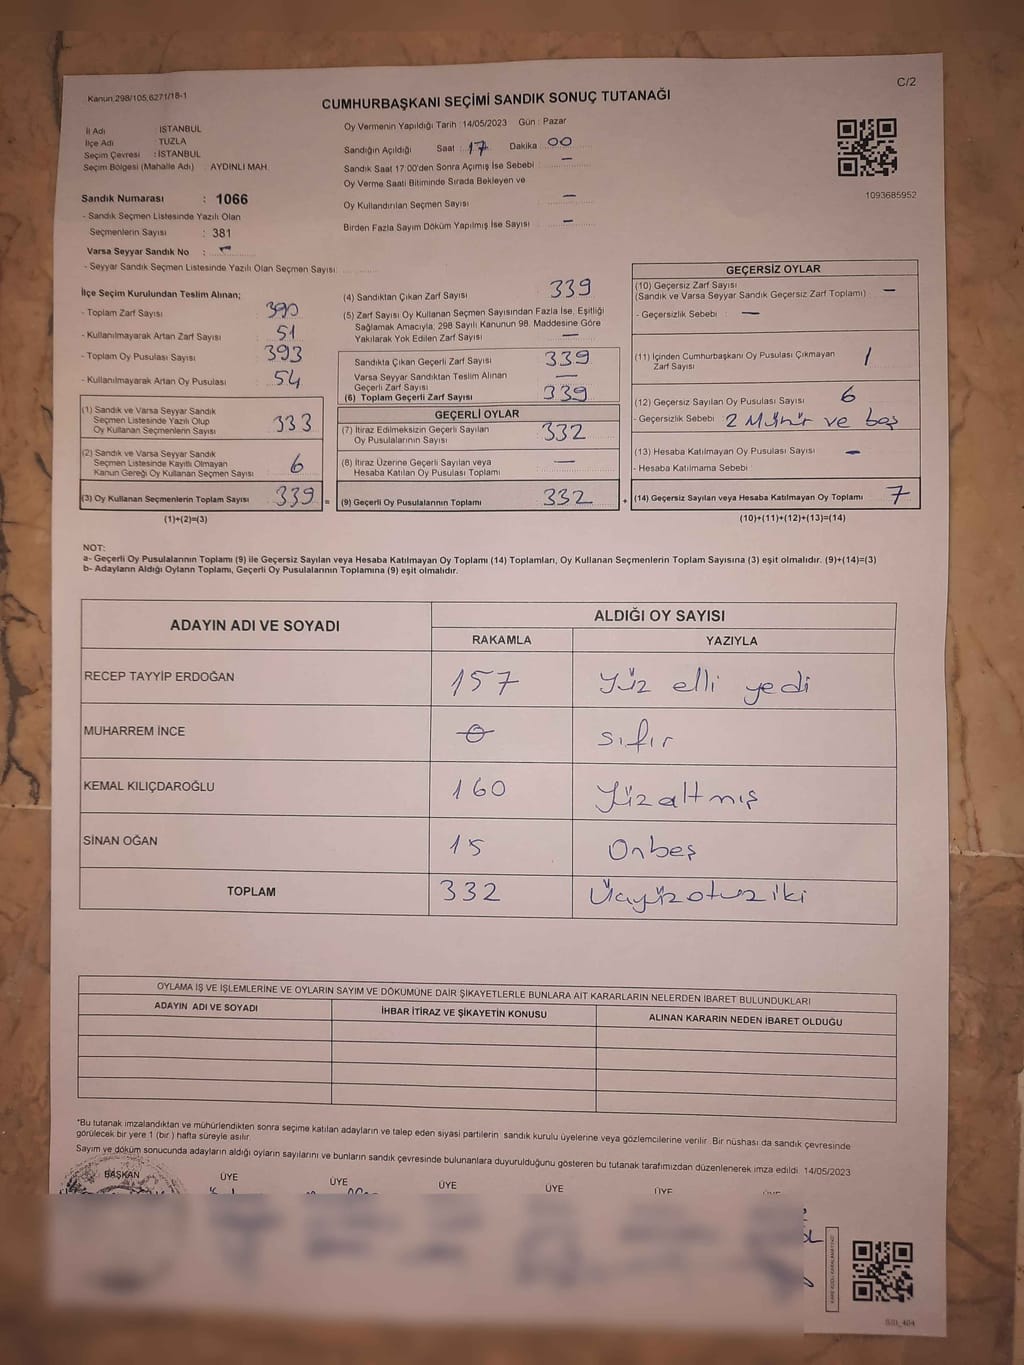 Kanun:298/105,6271/18-1
C/2
CUMHURBAŞKANI SEÇİMİ SANDIK SONUÇ TUTANAĞI
İl Adı : İSTANBUL
İlçe Adı : TUZLA
Seçim Çevresi : İSTANBUL
Seçim Bölgesi (Mahalle Adı) : AYDINLI MAH.
Sandık Numarası : 1066
- Sandık Seçmen Listesinde Yazılı Olan
Seçmenlerin Sayısı : 381
Varsa Seyyar Sandık No : -
- Seyyar Sandık Seçmen Listesinde Yazılı Olan Seçmen Sayısı:
Oy Vermenin Yapıldığı Tarih : 14/05/2023 Gün : Pazar
Sandığın Açıldığı Saat : 17 Dakika 00
Sandık Saat 17.00'den Sonra Açımış İse Sebebi : —
Oy Verme Saati Bitiminde Sırada Bekleyen ve
Oy Kullandırılan Seçmen Sayısı —
Birden Fazla Sayım Döküm Yapılmış İse Sayısı : —
1093685952
İlçe Seçim Kurulundan Teslim Alınan;
- Toplam Zarf Sayısı : 390
- Kullanılmayarak Artan Zarf Sayısı : 51
- Toplam Oy Pusulası Sayısı : 393
- Kullanılmayarak Artan Oy Pusulası : 54
(1) Sandık ve Varsa Seyyar Sandık
Seçmen Listesinde Yazılı Olup
Oy Kullanan Seçmenlerin Sayısı : 333
(2) Sandık ve Varsa Seyyar Sandık
Seçmen Listesinde Kayıtlı Olmayan
Kanun Gereği Oy Kullanan Seçmen Sayısı : 6
(3) Oy Kullanan Seçmenlerin Toplam Sayısı : 339 =
(1)+(2)=(3)
(4) Sandıktan Çıkan Zarf Sayısı : 339
(5) Zarf Sayısı Oy Kullanan Seçmen Sayısından Fazla İse, Eşitliği
Sağlamak Amacıyla; 298 Sayılı Kanunun 98. Maddesine Göre
Yakılarak Yok Edilen Zarf Sayısı : —
Sandıkta Çıkan Geçerli Zarf Sayısı : 339
Varsa Seyyar Sandıktan Teslim Alınan
Geçerli Zarf Sayısı : —
(6) Toplam Geçerli Zarf Sayısı : 339
GEÇERLİ OYLAR
(7) İtiraz Edilmeksizin Geçerli Sayılan
Oy Pusulalarının Sayısı : 332
(8) İtiraz Üzerine Geçerli Sayılan veya
Hesaba Katılan Oy Pusulası Toplamı : —
(9) Geçerli Oy Pusulalarının Toplamı : 332 +
GEÇERSİZ OYLAR
(10) Geçersiz Zarf Sayısı
(Sandık ve Varsa Seyyar Sandık Geçersiz Zarf Toplamı) : —
- Geçersizlik Sebebi : —
(11) İçinden Cumhurbaşkanı Oy Pusulası Çıkmayan
Zarf Sayısı : 1
(12) Geçersiz Sayılan Oy Pusulası Sayısı : 6
- Geçersizlik Sebebi : 2 Mühür ve boş
(13) Hesaba Katılmayan Oy Pusulası Sayısı : —
- Hesaba Katılmama Sebebi :
(14) Geçersiz Sayılan veya Hesaba Katılmayan Oy Toplamı : 7
(10)+(11)+(12)+(13)=(14)
NOT:
a- Geçerli Oy Pusulalarının Toplamı (9) ile Geçersiz Sayılan veya Hesaba Katılmayan Oy Toplamı (14) Toplamları, Oy Kullanan Seçmenlerin Toplam Sayısına (3) eşit olmalıdır. (9)+(14)=(3)
b- Adayların Aldığı Oyların Toplamı, Geçerli Oy Pusulalarının Toplamına (9) eşit olmalıdır.
ADAYIN ADI VE SOYADI
ALDIĞI OY SAYISI
RAKAMLA YAZIYLA
RECEP TAYYİP ERDOĞAN 157 Yüz elli yedi
MUHARREM İNCE 0 sıfır
KEMAL KILIÇDAROĞLU 160 Yüzaltmış
SİNAN OĞAN 15 Onbeş
TOPLAM 332 Üçyüzotuziki
OYLAMA İŞ VE İŞLEMLERİNE VE OYLARIN SAYIM VE DÖKÜMÜNE DAİR ŞİKAYETLERLE BUNLARA AİT KARARLARIN NELERDEN İBARET BULUNDUKLARI
ADAYIN ADI VE SOYADI İHBAR İTİRAZ VE ŞİKAYETİN KONUSU ALINAN KARARIN NEDEN İBARET OLDUĞU
*Bu tutanak imzalandıktan ve mühürlendikten sonra seçime katılan adayların ve talep eden siyasi partilerin sandık kurulu üyelerine veya gözlemcilerine verilir. Bir nüshası da sandık çevresinde
görülecek bir yere 1 (bir ) hafta süreyle asılır.
Sayım ve döküm sonucunda adayların aldığı oyların sayılarını ve bunların sandık çevresinde bulunanlara duyurulduğunu gösteren bu tutanak tarafımızdan düzenlenerek imza edildi. 14/05/2023
BAŞKAN ÜYE ÜYE ÜYE ÜYE ÜYE